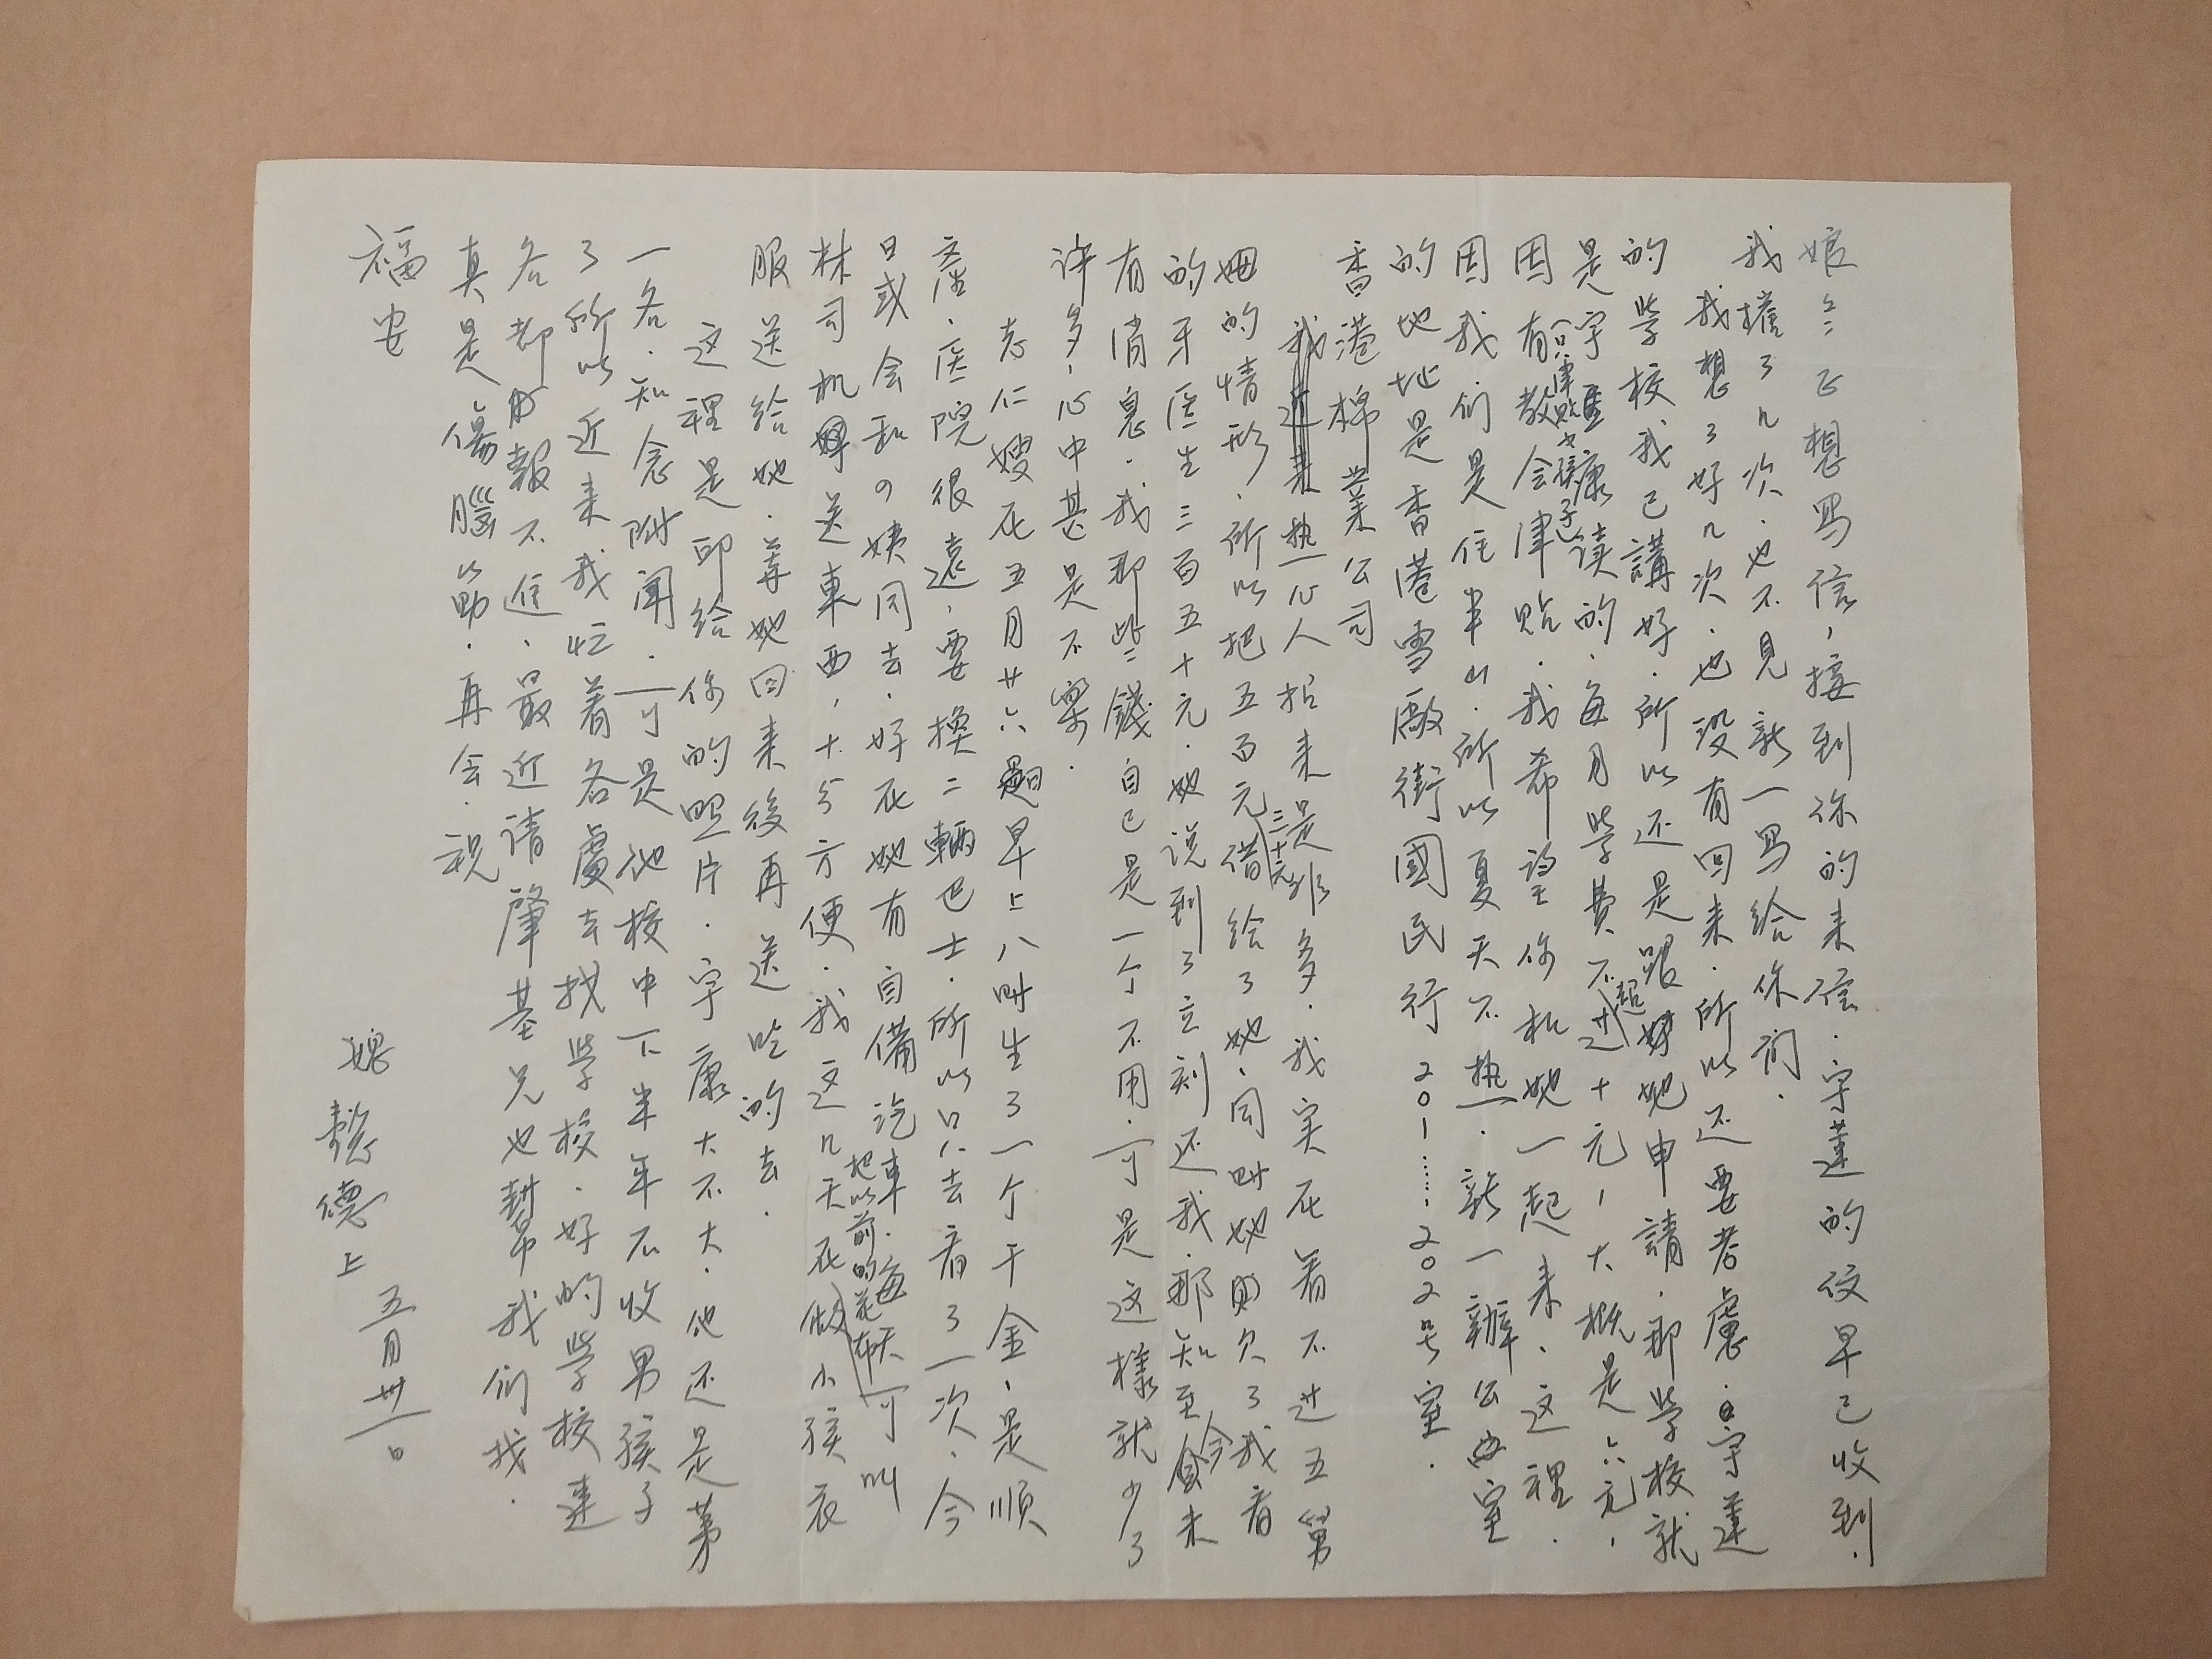 娘：正想寫信，接到你的来信．守蓮的信早已收到．
我擋了几次．也不見新一寫給你们．
我想了好几次．也没有回来．所以还要考慮．守蓮
的學校我已講好．所以还是跟她申請．那學校就
是守康读的．每月學费不超过十元，大概是六元，
因有教会津貼．我希望你和她一起来．这裡．
（只津貼女孩子）
因我们是住半山．所以夏天不热．新一辦公室
的地址是香港雪廠街國民行201……202号室．
香港棉業公司
热心人招来是非多．我实在看不过五舅
姆的情形．所以把五百元借給了她．同時她則欠了我看
三十元
的牙医生三百五十元．她说到了立刻还我．那知至今未
有消息．我那些錢自己是一个不用．可是这樣就少了
许多，心中甚是不樂．
志仁嫂在五月廿六早上八時生了一个千金，是順
產．医院很遠，要換二輛巴士．所以只去看了一次．今
日或会和四姨同去．好在她有自備汽車．每天可叫
林司机送東西，十分方便．我这几天在做小孩衣
把以前的花布
服送給她．等她回来後再送吃的去．
这裡是印給你的照片．守康大不大．他还是第
一名．知念附聞．可是他校中下半年不收男孩子
了所以近来我忙着各處去找學校．好的學校連
名都報不進．最近请肇基兄也幫我们找．
真是傷腦筋．再会．祝
福安
媳懿德上
五月卅一日